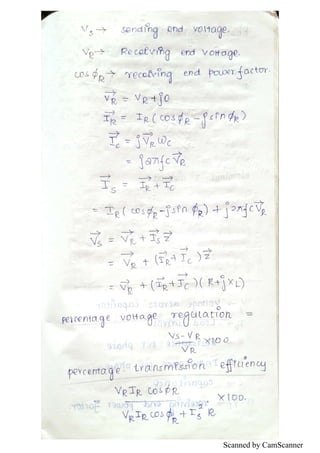 V_S → sending end voltage.
V_R → Receiving end voltage.
cos φ_R → receiving end power factor.
V_R = V_R + j0
I_R = I_R (cos φ_R - j sin φ_R)
I_C = j V_R ωC
= j2πfC V_R
I_S = I_R + I_C
= I_R (cos φ_R - j sin φ_R) + j2πfC V_R
V_S = V_R + I_S Z
= V_R + (I_R + I_C) Z
= V_R + (I_R + I_C)(R + jX_L)
percentage voltage regulation =
V_S - V_R / V_R × 100
percentage transmission efficiency
V_R I_R cos φ_R / V_R I_R cos φ_R + I_S² R × 100.
Scanned by CamScanner